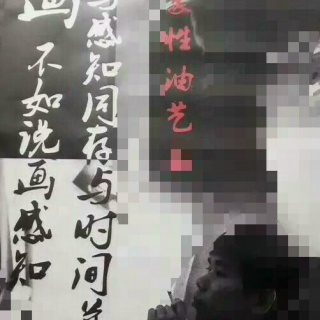 性油艺
感知同存与时间
画 不如说画感知